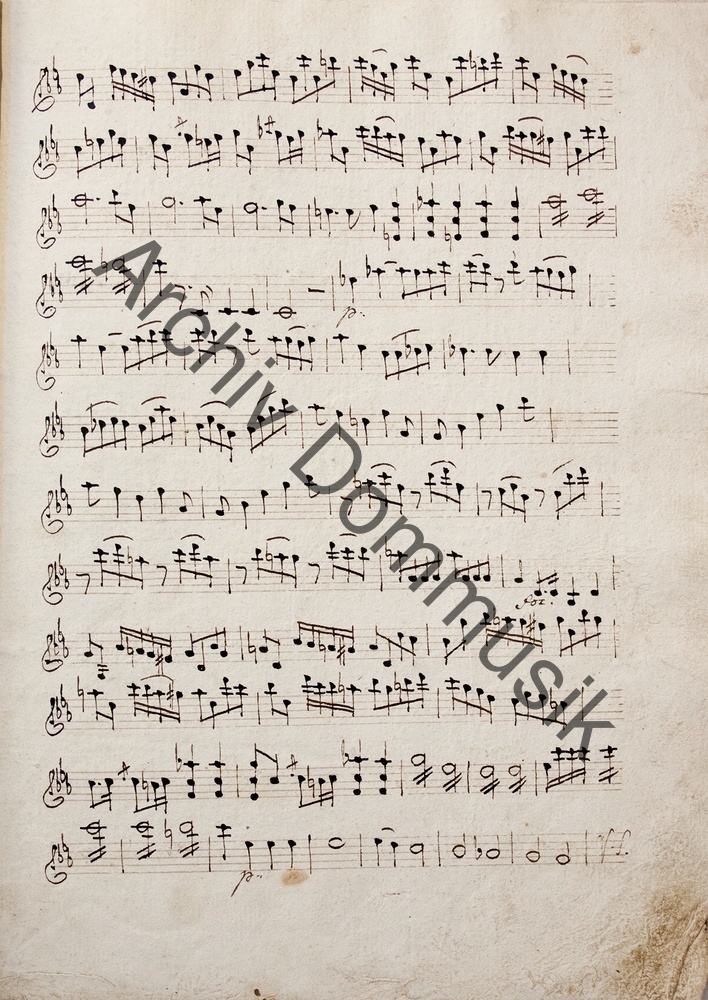 p.
for.
p.
Archiv Dommusik